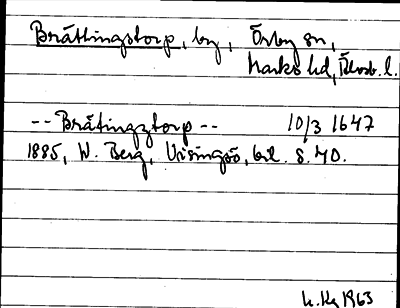 Brättingstorp, by, Örby sn,
Marks hd, Älvsb. l.
-- Bråtingztorp -- 10/3 1647
1885, W. Berg, Visingsö, bil. s. 40.
1963